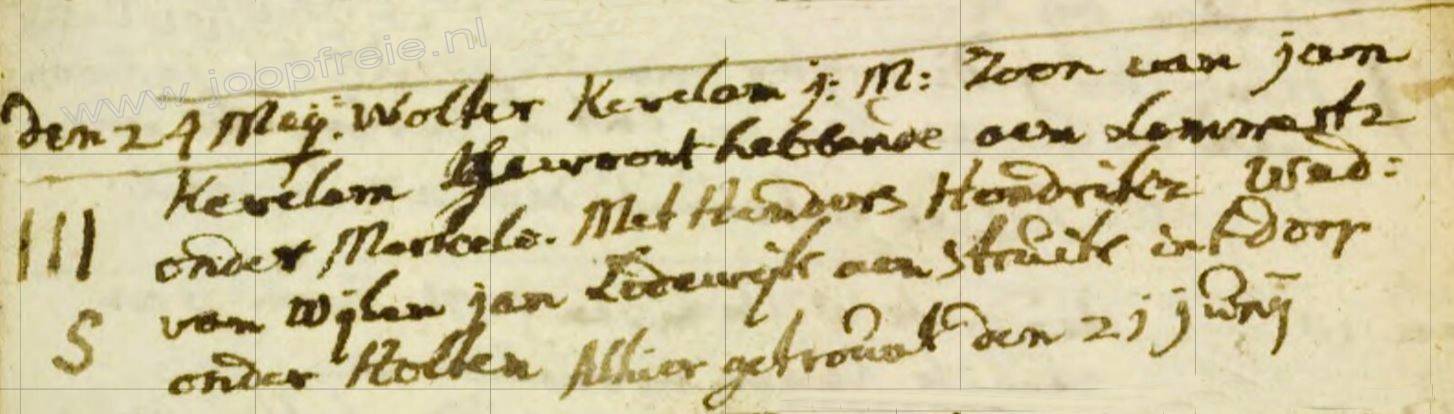 www.joopfreie.nl
den 24 Meij. Wolter Kevelam j: M: Zoon van jan
Kevelam gewoont hebbende aen Lammertz
III onder Markelo. Met Henders Hendrikz Wed:
van Wijlen jan Lodewijk aen Struik int dorp
S onder Holten Alhier getrouwt den 21 junij